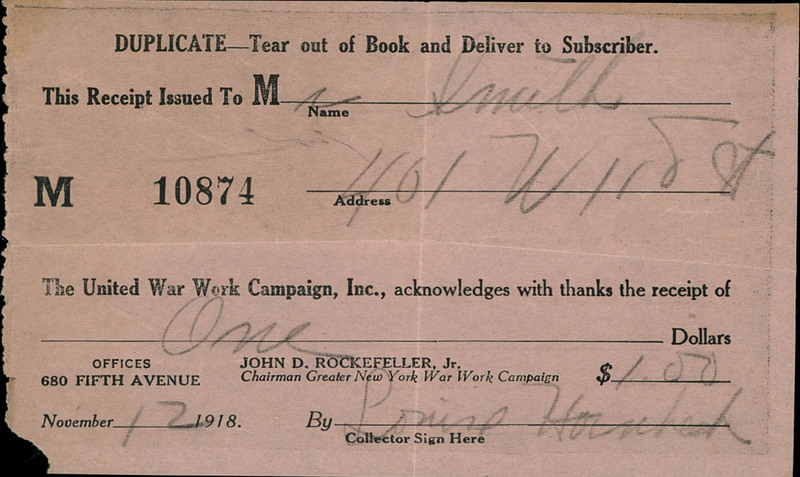 DUPLICATE—Tear out of Book and Deliver to Subscriber.
This Receipt Issued To Mr Smith
Name
M 10874 401 W 118 St
Address
The United War Work Campaign, Inc., acknowledges with thanks the receipt of
One Dollars
OFFICES JOHN D. ROCKEFELLER, Jr.
680 FIFTH AVENUE Chairman Greater New York War Work Campaign $1.00
November 12 1918. By Louise Hornbeck
Collector Sign Here